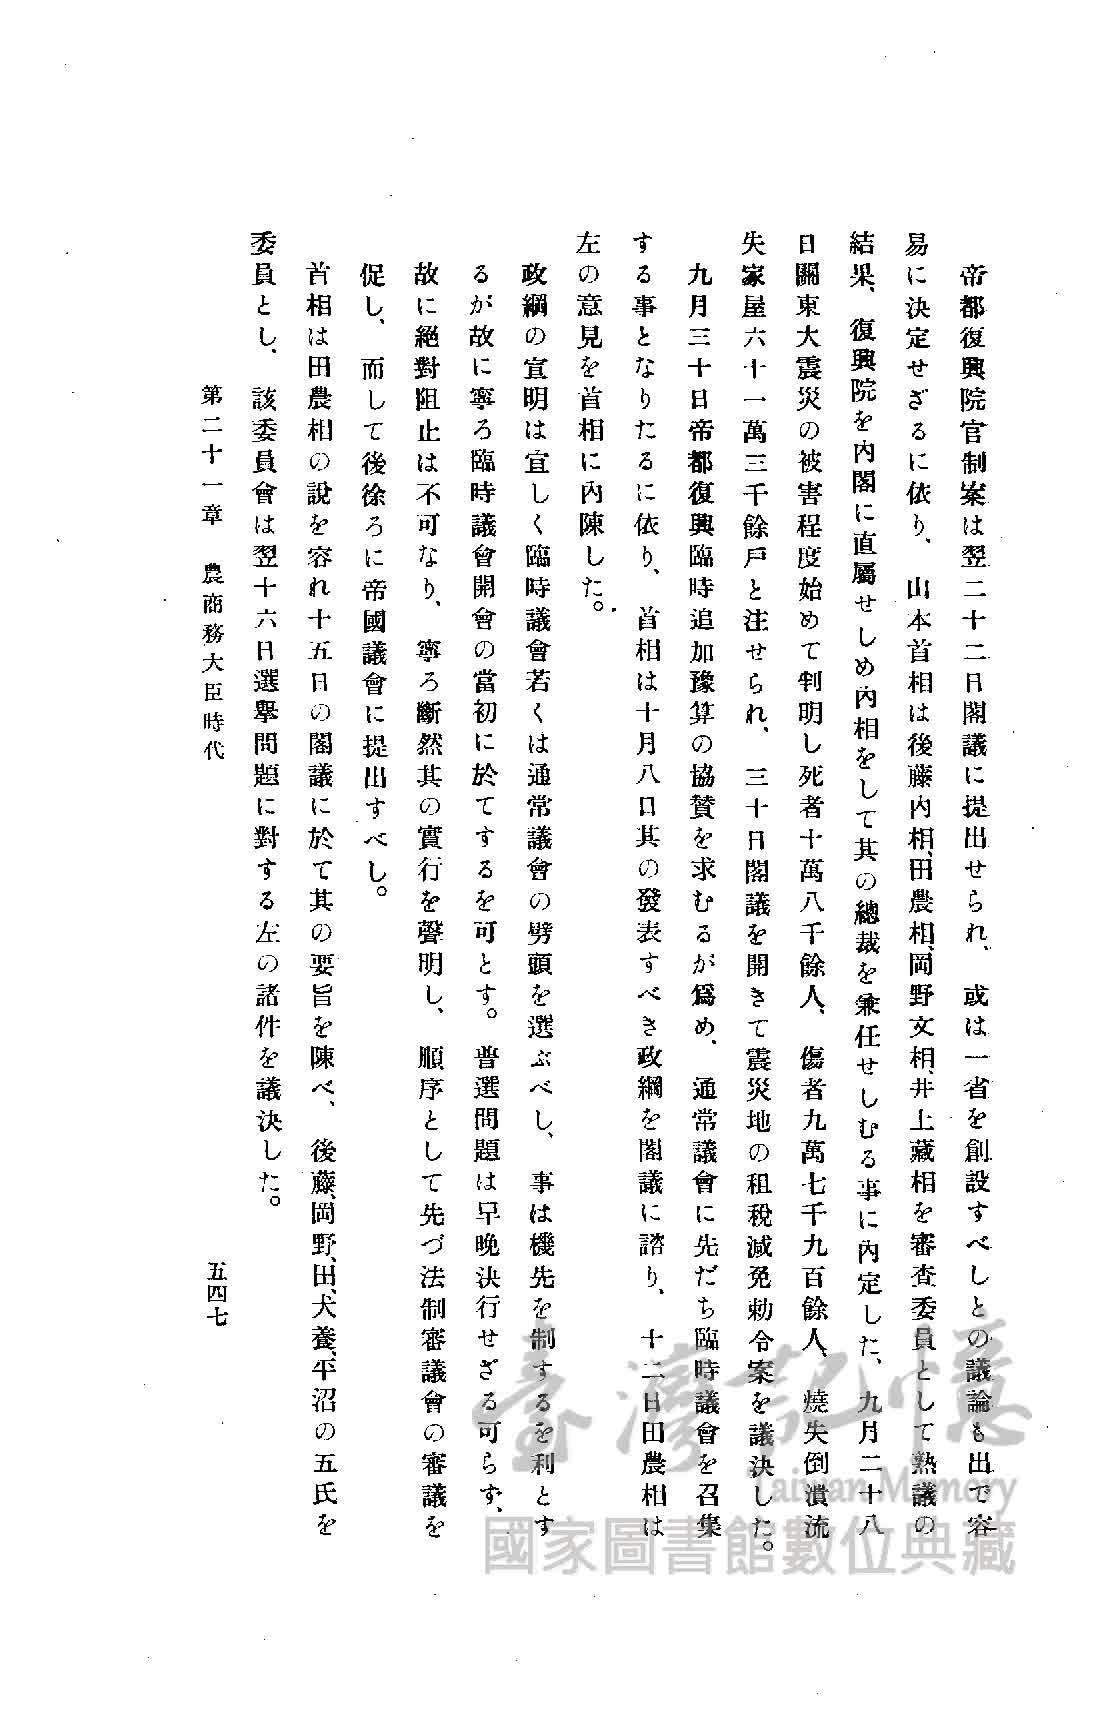 帝都復興院官制案は翌二十二日閣議に提出せられ、或は一省を創設すべしとの議論も出で容
易に決定せざるに依り、山本首相は後藤內相、田農相、岡野文相、井上藏相を審査委員として熟議の
結果、復興院を內閣に直屬せしめ內相をして其の總裁を兼任せしむる事に內定した、九月二十八
日關東大震災の被害程度始めて判明し死者十萬八千餘人、傷者九萬七千九百餘人、燒失倒潰流
失家屋六十一萬三千餘戶と注せられ、三十日閣議を開きて震災地の租稅減免勅令案を議決した。
九月三十日帝都復興臨時追加豫算の協贊を求むるが爲め、通常議會に先だち臨時議會を召集
する事となりたるに依り、首相は十月八日其の發表すべき政綱を閣議に諮り、十二日田農相は
左の意見を首相に內陳した。
政綱の宣明は宜しく臨時議會若くは通常議會の劈頭を選ぶべし、事は機先を制するを利とす
るが故に寧ろ臨時議會開會の當初に於てするを可とす。普選問題は早晚決行せざる可らず、
故に絕對阻止は不可なり、寧ろ斷然其の實行を聲明し、順序として先づ法制審議會の審議を
促し、而して後徐ろに帝國議會に提出すべし。
首相は田農相の說を容れ十五日の閣議に於て其の要旨を陳べ、後藤、岡野、田、犬養、平沼の五氏を
委員とし、該委員會は翌十六日選擧問題に對する左の諸件を議決した。
第二十一章 農商務大臣時代
五四七
臺灣記憶
Taiwan Memory
國家圖書館數位典藏